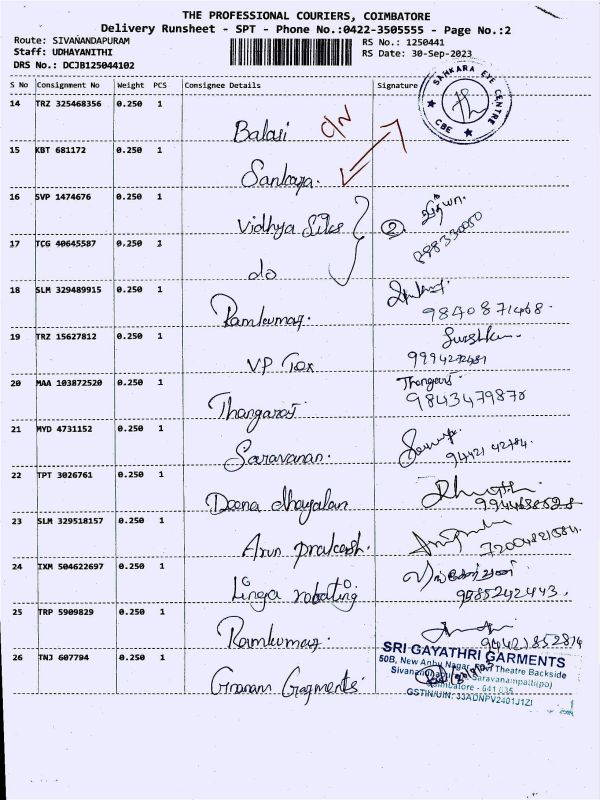 THE PROFESSIONAL COURIERS, COIMBATORE
Delivery Runsheet - SPT - Phone No.:0422-3505555 - Page No.:2
Route: SIVANANDAPURAM
RS No.: 1250441
Staff: UDHAYANITHI
RS Date: 30-Sep-2023
DRS No.: DCJB125044102
S No Consignment No Weight PCS Consignee Details Signature
SANKARA EYE CENTRE
CBE
14 TRZ 325468356 0.250 1 Balaji
15 KBT 681172 0.250 1 Sankara.
16 SVP 1474676 0.250 1 Vidhya Silks
17 TCG 40645587 0.250 1 do
18 SLM 329489915 0.250 1 Ramkumar. 9840871468.
19 TRZ 15627812 0.250 1 VP Tex
20 MAA 103872520 0.250 1 Thangaraj 9843479870
21 MYD 4731152 0.250 1 Saravanan.
22 TPT 3026761 0.250 1 Deena dhayalan
23 SLM 329518157 0.250 1 Arun prakash.
24 IXM 504622697 0.250 1 Linga robating
25 TRP 5909829 0.250 1 Ramkumar.
26 TNJ 607794 0.250 1 Gnanam Garments
SRI GAYATHRI GARMENTS
50B, New Anbu Nagar, Theatre Backside
Saravanampatti(po)
Coimbatore - 641 035
GSTIN/UIN: 33ADNPV2401J1ZI